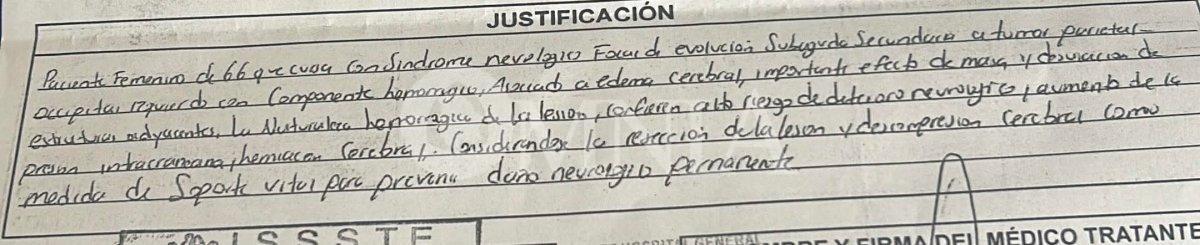 JUSTIFICACIÓN
Paciente Femenino de 66 que cursa con Sindrome neurologico Focal de evolución Subaguda Secundario a tumor parietal-
occipital izquierdo con Componente hemorragico, Asociado a edema cerebral, importante efecto de masa y desviacion de
estructuras adyacentes, la Naturaleza hemorragica de la lesion, confieren alto riesgo de deterioro neurologico, aumento de la
presion intracraneana, herniacion Cerebral. Considerandose la reseccion de la lesion y descompresion Cerebral como
medida de Soporte vital para prevenir daño neurologico permanente
ISSSTE
GENERAL
Y FIRMA DEL MÉDICO TRATANTE